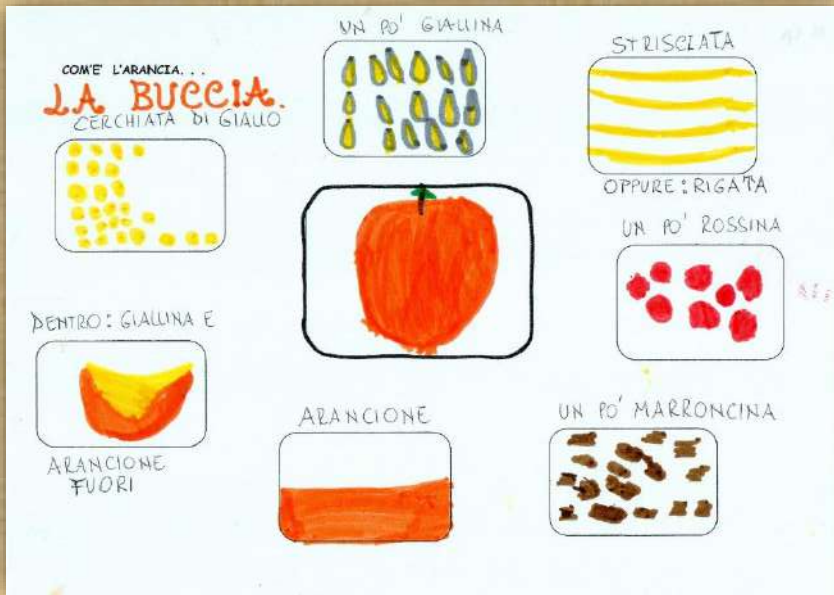 COM'E' L'ARANCIA...
LA BUCCIA.
CERCHIATA DI GIALLO
UN PO' GIALLINA
STRISCIATA
OPPURE: RIGATA
UN PO' ROSSINA
DENTRO: GIALLINA E
ARANCIONE
FUORI
ARANCIONE
UN PO' MARRONCINA